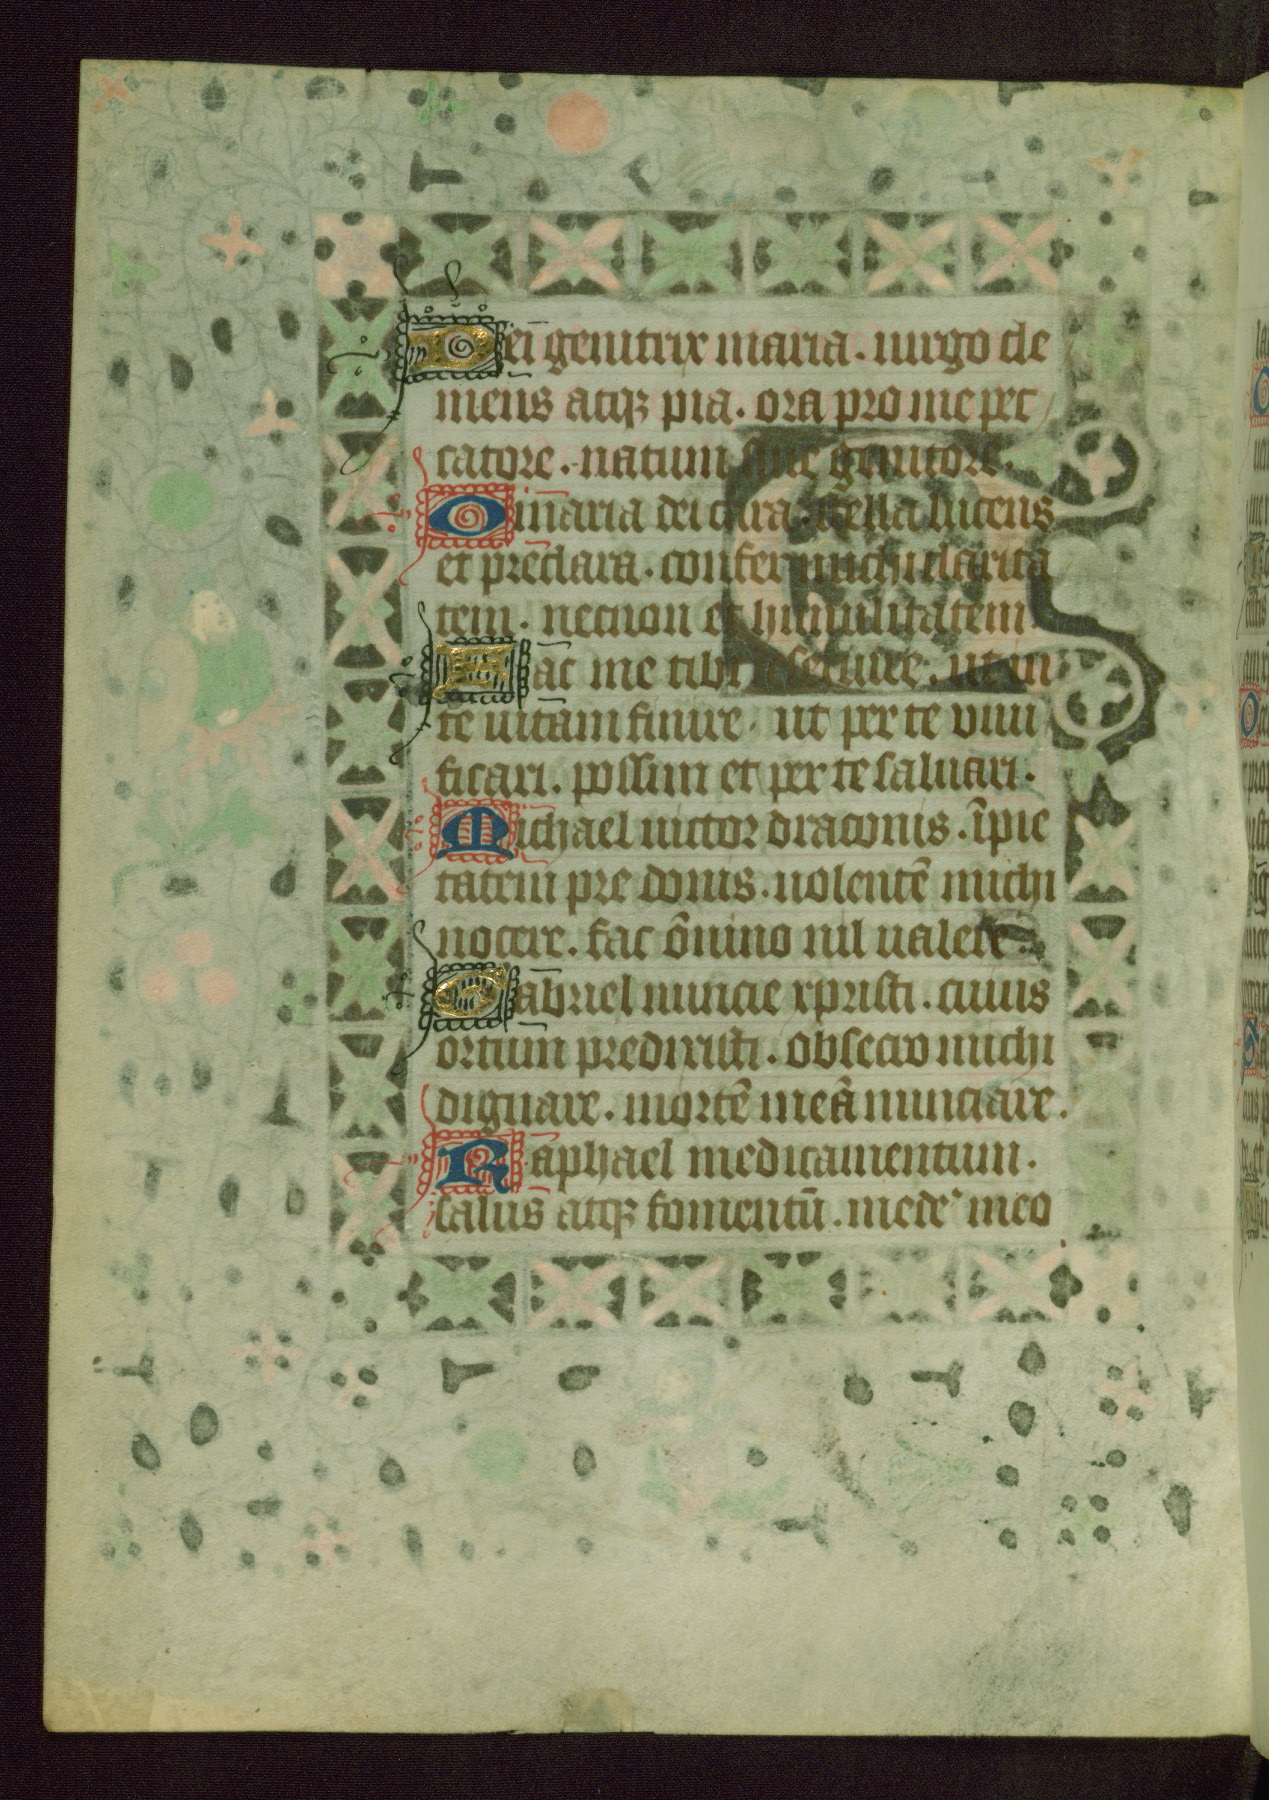 Dei genitrix maria. uirgo cle
mens atqȝ pia. ora pro me pec
catore. natum sine genitore.
O maria dei cara. stella lucens
et preclara. confer michi clarita
tem. necnon et humilitatem.
Fac me tibi seruire. ut in
te uitam finire. ut per te viui
ficari. possim et per te saluari.
Michael uictor draconis. īpie
tatem pre donis. uolentē michi
nocere. fac ōnino nil ualere.
Gabriel nuncie xpristi. cuius
ortum predixisti. obsecro michi
dignare. mortē meā nunciare.
Raphael medicamentum.
salus atqȝ fomentū. mede meo